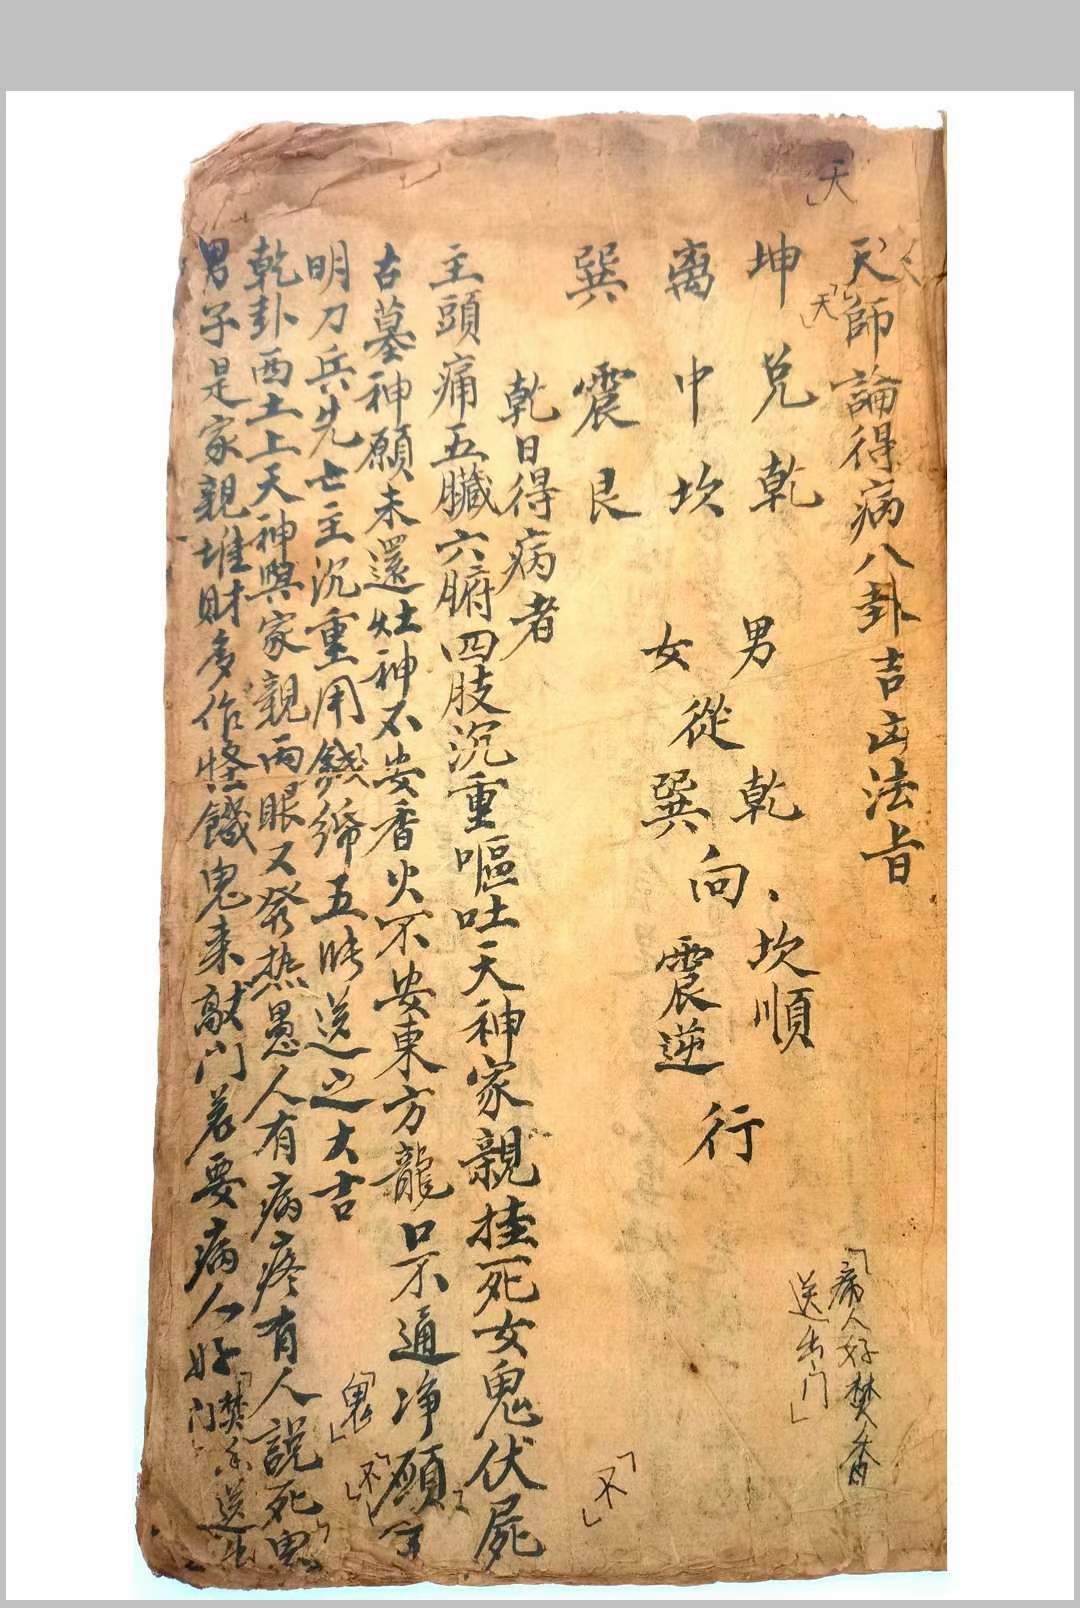 天師論得病八卦吉凶法旨
「天」
「天」
坤兌乾
離中坎
巽震艮
男乾、坎順
從向行
女巽震逆
「病人好焚香
送出门」
乾日得病者
主頭痛五臟六腑四肢沉重嘔吐天神家親挂死女鬼伏屍
「不」
古墓神願未還灶神不安香火不安東方龍口不通净願
「不」
明刀兵先亡主沉重用錢 五 送之大吉
「鬼」
乾卦西土上天神與家親兩眼又發热愚人有病疼有人說死鬼
男子是家親堆財多作怪餓鬼来敲门若要病人好焚香送出门